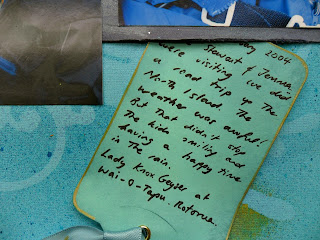 2004
Stewart & Jenna
were visiting we did
a road trip up the
North Island. The
weather was awful!
But that didn't stop
the kids smiling and
having a happy time
in the rain.
Lady Knox Geyser at
Wai-O-Tapu. Rotorua.